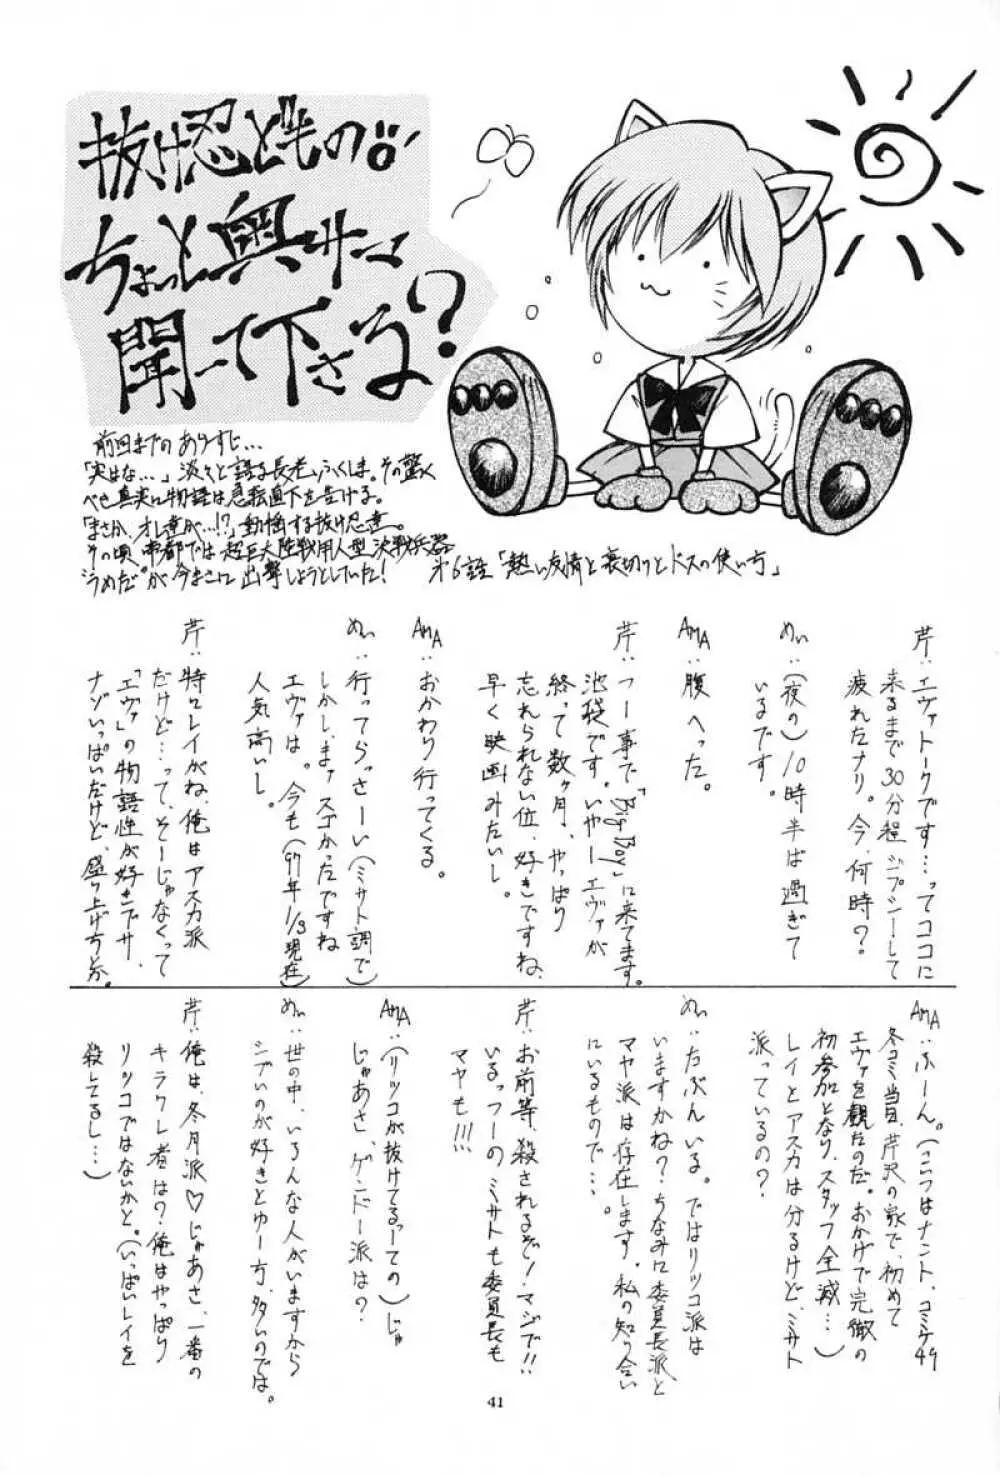 抜け忍どもの
ちょっと奥サマ
聞いて下さる?
前回までのあらすじ…
「実はな…」淡々と語る長老、ふくしま。その驚く
べき真実に物語は急転直下を告げる。
「まさか、オレ達が…!?」動揺する抜け忍達。
その頃、帝都では超巨大陸戦用人型決戦兵器
"うめだ"が今まさに出撃しようとしていた!
オ6話「熱い友情と裏切りとドスの使い方」
芹:エヴァトークです…ってココに
来るまで30分程ジプシーして
疲れたナリ。今、何時?
めい:(夜の)10時半ば過ぎて
いるです。
AMA:腹へった。
芹:つー事で「Big Boy」に来てます。
池袋です。いやーエヴァが
終って数ヶ月、やっぱり
忘れられない位、好きですね、
早く映画みたいし。
AMA:おかわり行ってくる。
めい:行ってらっさーい(ミサト調で)
しかし、まァスゴかったですね
エヴァは。今も(97年1/3現在)
人気高いし。
芹:特にレイがね、俺はアスカ派
だけど…って、そーじゃなくって
「エヴァ」の物語性が好きでサ、
ナゾいっぱいだけど、盛り上げ方とか。
AMA:ふーん。(こいつはナント、コミケ49
冬コミ当日、芹沢の家で、初めて
エヴァを観たのだ。おかげで完徹の
初参加となり、スタッフ全滅…)
レイとアスカは分るけど、ミサト
派っているの?
めい:たぶんいる。ではリツコ派は
いますかね?ちなみに委員長派と
マヤ派は存在します。私の知り合い
にいるもので…。
芹:お前等、殺されるぞ!マジで!!
いるっつーのミサトも委員長も
マヤも!!!
AMA:(リツコが抜けてるっての)じゅ
じゃあさ、ゲンドー派は?
めい:世の中、いろんな人がいますから
シブいのが好きとゆー方、多いのでは。
芹:俺は、冬月派♡じゃあさ、一番の
キラワレ者は?俺はやっぱり
リツコではないかと。(いっぱいレイを
殺してるし…)
41